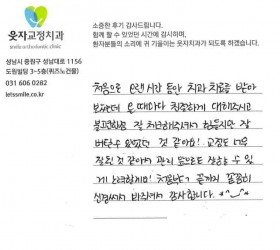 소중한 후기 감사드립니다.
함께 할 수 있었던 시간에 감사하며,
환자분들의 소리에 귀 기울이는 웃자치과가 되도록 하겠습니다.
웃자교정치과
성남시 중원구 성남대로 1156
도원빌딩 3-5층(퀴즈노건물)
031 606 0282
letssmile.co.kr
처음으로 오랜시간 동안 치과 치료를 받아
보았는데 올 때마다 친절하게 대해주시고
불편함을 잘 처리해주셔서 힘들지만 잘
버틸수 있었던 것 같아요! 교정도 너무
잘된 것 같아서 관리 잘 할 수 있
게 노력할게요! 처음부터 끝까지 꼼꼼히
신경써서 봐주셔서 감사합니다. *^_^*